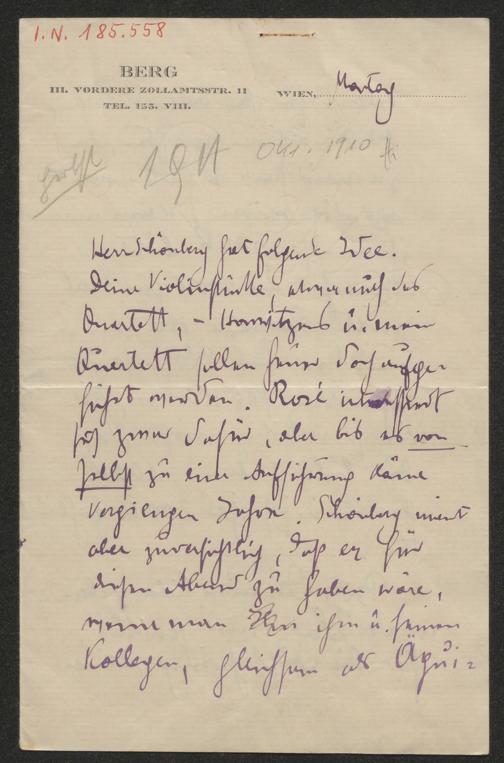 I.N. 185.558
BERG
III. VORDERE ZOLLAMTSSTR. 11
TEL. 155. VIII.
WIEN, Montag
Okt. 1910
Herr Schönberg hat folgende Idee.
Deine Violinstücke, etwa auch das
Quartett, – Horwitzens u. mein
Quartett sollen heuer doch aufge-
führt werden. Rosé interessirt
sich zwar dafür, aber bis es von
selbst zu einer Aufführung käme
vergiengen Jahre. Schönberg meint
aber zuversichtlich, daß er für
diesen Abend zu haben wäre,
wenn man ihm u. seinen
Kollegen, gleichsam als Äqui-